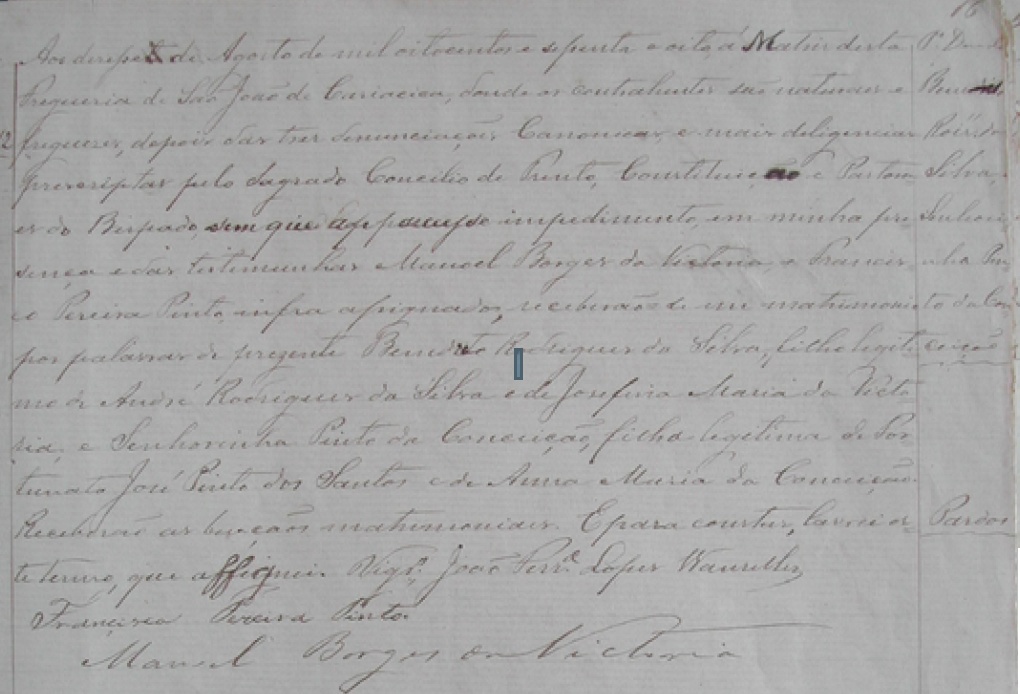 16
Aos desesete de Agosto de mil oitocentos e setenta e oito, á Matriz desta
Freguesia de São João de Cariacica, donde os contrahentes são naturaes e
freguezes, depois das tres denunciações Canonicas, e mais deligencias
prescriptas pelo Sagrado Concilio de Trento, Constituição e Pastora
es do Bispado, sem que apparecesse impedimento, em minha pre
sença e das testimunhas Manoel Borges da Victoria, e Francis
co Pereira Pinto, infra assignados, receberão-se em matrimonio
por palavras de prezente Benedito Rodrigues da Silva, filho legiti
mo de André Rodrigues da Silva e de Josefina Maria da Victo
ria, e Senhorinha Pinto da Conceição, filha legitima de For
tunato José Pinto dos Santos e de Anna Maria da Conceição.
Receberão as bençãos matrimoniaes. E para constar, lavrei es
te termo, que assignei. Vigrº. João Ferrª. Lopes Wanzelles
Francisco Pereira Pinto
Manoel Borges da Victoria
12
Roiz. da
Silva,
Senhori
nha Pin
to da Con
ceição
Pardos